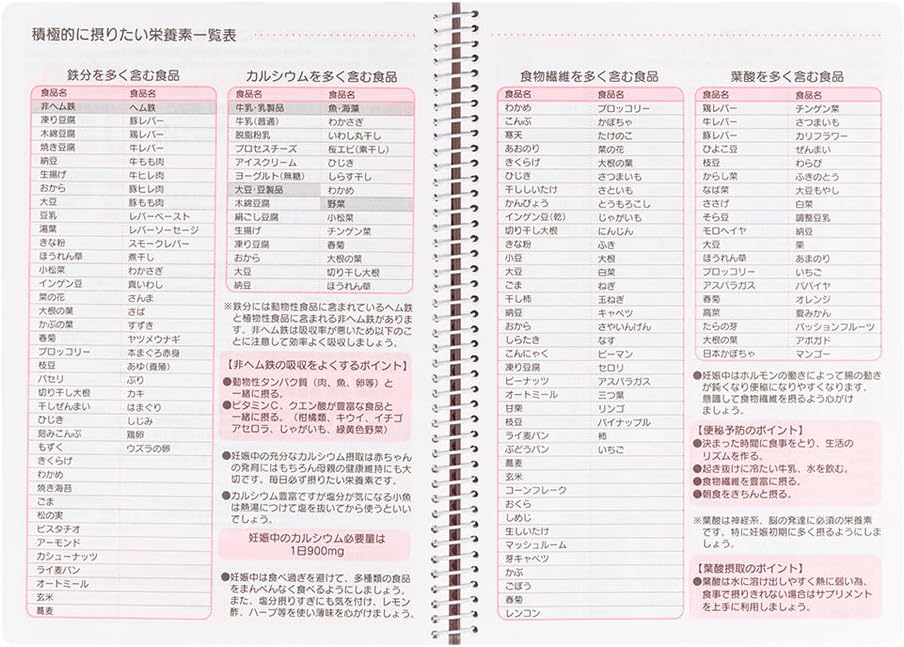 積極的に摂りたい栄養素一覧表
鉄分を多く含む食品
食品名 食品名
非ヘム鉄 ヘム鉄
凍り豆腐 豚レバー
木綿豆腐 鶏レバー
焼き豆腐 牛レバー
納豆 牛もも肉
生揚げ 牛ヒレ肉
おから 豚ヒレ肉
大豆 豚もも肉
豆乳 レバーペースト
湯葉 レバーソーセージ
きな粉 スモークレバー
ほうれん草 煮干し
小松菜 わかさぎ
インゲン豆 真いわし
菜の花 さんま
大根の葉 さば
かぶの葉 すずき
春菊 ヤツメウナギ
ブロッコリー 本まぐろ赤身
枝豆 あゆ(養殖)
パセリ ぶり
切り干し大根 カキ
干しぜんまい はまぐり
ひじき しじみ
刻みこんぶ 鶏卵
もずく ウズラの卵
きくらげ
わかめ
焼き海苔
ごま
松の実
ピスタチオ
アーモンド
カシューナッツ
ライ麦パン
オートミール
玄米
蕎麦
カルシウムを多く含む食品
食品名 食品名
牛乳・乳製品 魚・海藻
牛乳(普通) わかさぎ
脱脂粉乳 いわし丸干し
プロセスチーズ 桜エビ(素干し)
アイスクリーム ひじき
ヨーグルト(無糖) しらす干し
大豆・豆製品 わかめ
木綿豆腐 野菜
絹ごし豆腐 小松菜
生揚げ チンゲン菜
凍り豆腐 春菊
おから 大根の葉
大豆 切り干し大根
納豆 ほうれん草
※鉄分には動物性食品に含まれているヘム鉄
と植物性食品に含まれる非ヘム鉄がありま
す。非ヘム鉄は吸収率が悪いため以下のこ
とに注意して効率よく吸収しましょう。
【非ヘム鉄の吸収をよくするポイント】
●動物性タンパク質(肉、魚、卵等)と
一緒に摂る。
●ビタミンC、クエン酸が豊富な食品と
一緒に摂る。(柑橘類、キウイ、イチゴ
アセロラ、じゃがいも、緑黄色野菜)
●妊娠中の充分なカルシウム摂取は赤ちゃん
の発育にはもちろん母親の健康維持にも大
切です。毎日必ず摂りたい栄養素です。
●カルシウム豊富ですが塩分が気になる小魚
は熱湯につけて塩を抜いてから使うといい
でしょう。
妊娠中のカルシウム必要量は
1日900mg
●妊娠中は食べ過ぎを避けて、多種類の食品
をまんべんなく食べるようにしましょう。
また、塩分摂りすぎにも気を付け、レモン
酢、ハーブ等を使い薄味を心がけましょう。
食物繊維を多く含む食品
食品名 食品名
わかめ ブロッコリー
こんぶ かぼちゃ
寒天 たけのこ
あおのり 菜の花
きくらげ 大根の葉
ひじき さつまいも
干ししいたけ さといも
かんぴょう とうもろこし
インゲン豆(乾) じゃがいも
切り干し大根 にんじん
きな粉 ふき
小豆 大根
大豆 白菜
ごま ねぎ
干し柿 玉ねぎ
納豆 キャベツ
おから さやいんげん
しらたき なす
こんにゃく ピーマン
凍り豆腐 セロリ
ピーナッツ アスパラガス
オートミール 三つ葉
甘栗 リンゴ
枝豆 パイナップル
ライ麦パン 柿
ぶどうパン いちご
蕎麦
玄米
コーンフレーク
おくら
しめじ
生しいたけ
マッシュルーム
芽キャベツ
かぶ
ごぼう
春菊
レンコン
葉酸を多く含む食品
食品名 食品名
鶏レバー チンゲン菜
牛レバー さつまいも
豚レバー カリフラワー
ひよこ豆 ぜんまい
枝豆 わらび
からし菜 ふきのとう
なば菜 大豆もやし
ささげ 白菜
そら豆 調整豆乳
モロヘイヤ 納豆
大豆 栗
ほうれん草 あまのり
ブロッコリー いちご
アスパラガス パパイヤ
春菊 オレンジ
高菜 夏みかん
たらの芽 パッションフルーツ
大根の葉 アボガド
日本かぼちゃ マンゴー
●妊娠中はホルモンの働きによって腸の動き
が鈍くなり便秘になりやすくなります。
意識して食物繊維を摂るよう心がけ
ましょう。
【便秘予防のポイント】
●決まった時間に食事をとり、生活の
リズムを作る。
●起き抜けに冷たい牛乳、水を飲む。
●食物繊維を豊富に摂る。
●朝食をきちんと摂る。
※葉酸は神経系、脳の発達に必須の栄養素
です。特に妊娠初期に多く摂るようにしま
しょう。
【葉酸摂取のポイント】
●葉酸は水に溶け出しやすく熱に弱い為、
食事で摂りきれない場合はサプリメント
を上手に利用しましょう。